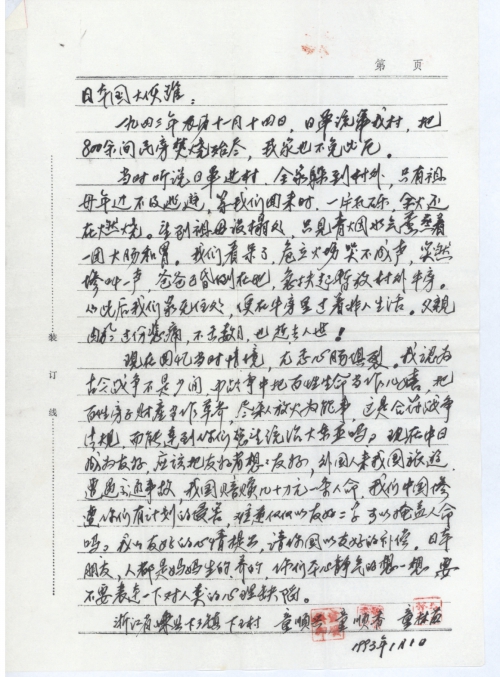 第 页
日本国大使馆:
一九四二年农历十一月十四日,日军洗劫我村,把
800余间民房焚烧殆尽,我家也不免此厄。
当时听说日军进村 全家躲到村外,只有祖
母年迈不及逃避,等我们回来时,一片瓦砾,余火还
在燃烧。寻到祖母误榻处 只见青烟水气 牵着
一团大肠和胃。我们看呆了,危立火场哭不成声,突然
惨叫一声,爸爸已昏倒在地,急扶起暂放村外牛房。
从此后我们家无住处,便在牛房里过着非人生活。父亲
因 过份悲痛,不去数月,也逝去人世!
现在回忆当时情境,无不心肠俱裂。我认为
古今战争不是少闻 战争中把百姓生命当作 把
百姓房子财产当作草芥,尽杀人放火为能事,这是合符战争
法规,而能达到你们 统治大东亚吗?现在中日
成为友好,应该把友好着想:友好,外国人来我国旅遊
遭遇交通事故,我国赔赎几十万元一条人命,我们中国惨
遭你们有计划的杀害,难道仅仅以友好二字可以掩盖人命
吗?我以友好的心情提出,请你国以友好的补偿。日本
朋友,人都是妈妈生的养的,你们平心静气的想一想 要
不要表达一下对人类的心理缺陷。
浙江省 县下 镇下王村 童顺 童顺香 童
1993年1月1日
装订线